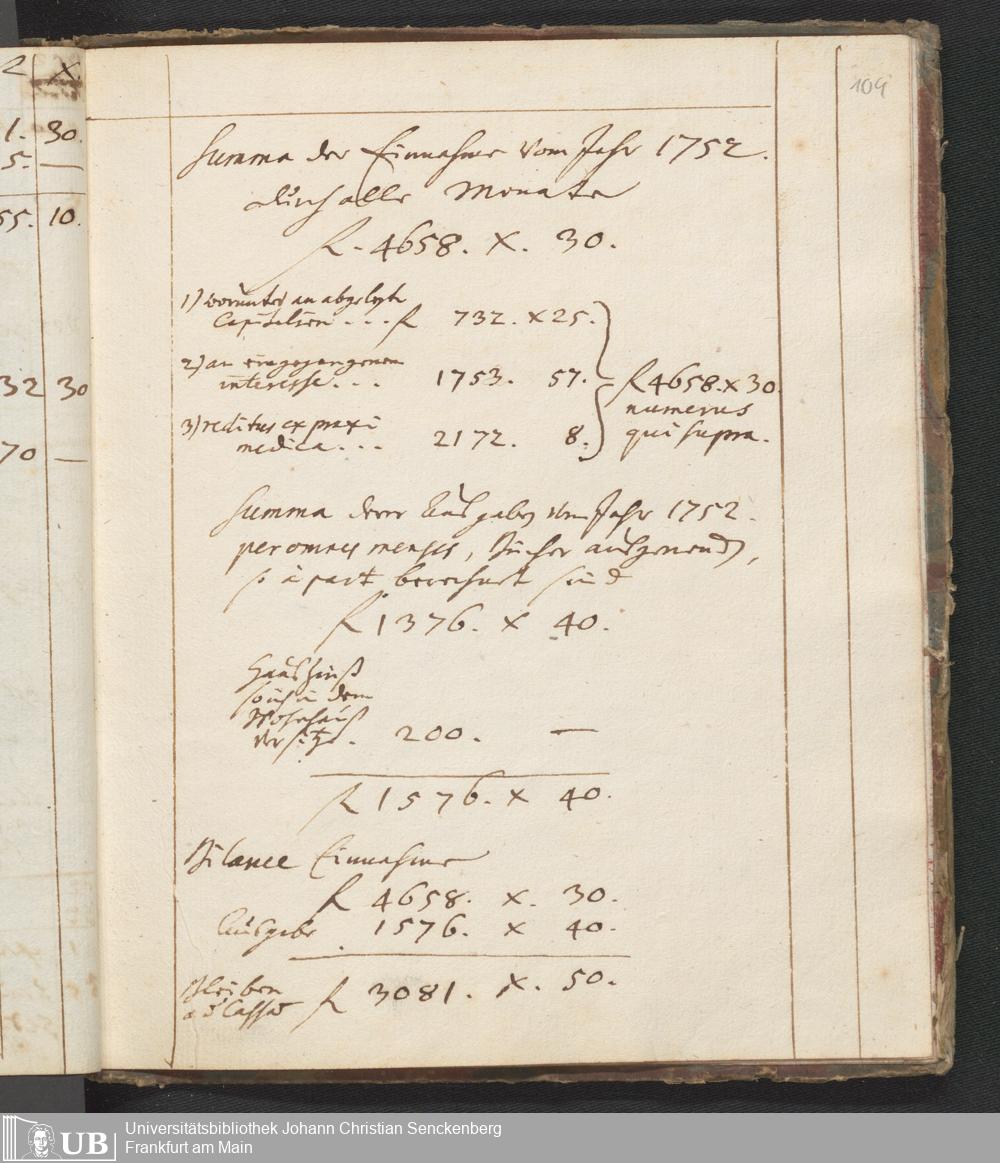 R X
1. 30.
5. —
55. 10.
32 30
70 —
104
Summa der Einnahme vom Jahr 1752.
durch alle Monate
fl. 4658. X. 30.
1) worunter an abgelegte
Capitalien . . . fl 732. x 25.
2) an eingegangenem
interesse . . . 1753. 57.
fl 4658. x 30.
numerus
qui supra.
3) reditus ex praxi
medica . . . 2172. 8.
Summa derer Ausgaben vom Jahr 1752.
per omnes menses, Bücher ausgenomen,
so à part berechnet sind
fl 1376. x 40.
Hauszinß
so ich in dem
Wohnhauß
versitze. 200. —
fl 1576. x 40.
Bilance Einnahme
fl 4658. x. 30.
Ausgabe 1576. x 40.
Bleiben
ad Cassa fl 3081. x. 50.
UB
Universitätsbibliothek Johann Christian Senckenberg
Frankfurt am Main